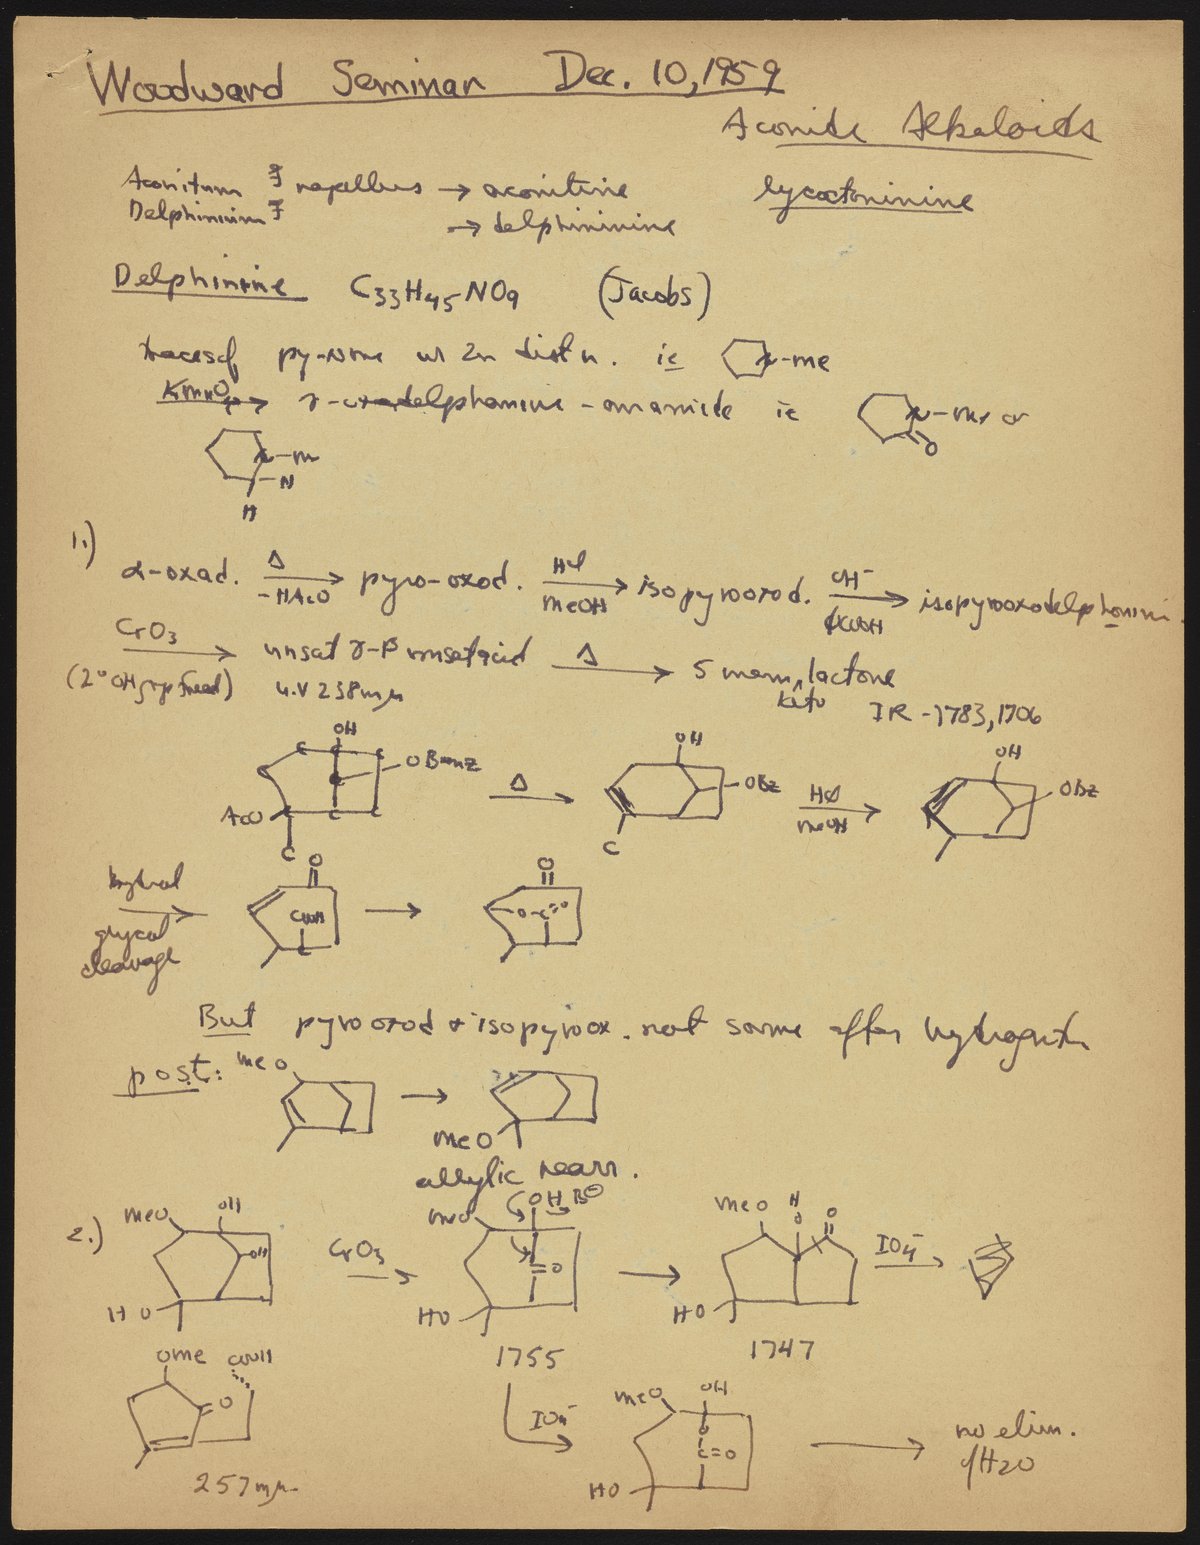 Woodward Seminar Dec. 10, 1959
Aconite Alkaloids
Aconitum napellus → aconitine lycoctoninine
Delphinium → delphininine
Delphinine C33H45NO9 (Jacobs)
traces of py-none w Zn distn. ie N-me
KmnO4 → delphonine ie N-me or
O
N-m
N
H
1.)
α-oxad. Δ -HAcO → pyro-oxod. HCl MeOH → isopyrooxod. OH⁻ →
CrO3 → unsat γ-β unsat acid Δ → 5 mem, lactone
(2° OH grp freed) u.v 238mμ keto IR -1783, 1706
OH
C C C OBenz Δ → OH OBz HCl meOH → OH OBz
AcO C C
C C
hydrol glycol cleavage → O COOH C → O O-C=O
But pyrooxod + isopyroox. not same after hydrogenth
post: meO → MeO
allylic rearr.
2.) MeO OH OH HO CrO3 → meO OH B⊖ =O HO → MeO H O O HO IO4⁻ →
1755 1747
OMe COOH
O
257mμ
IO4⁻ → meO OH O C=O HO → no elim.
H2O